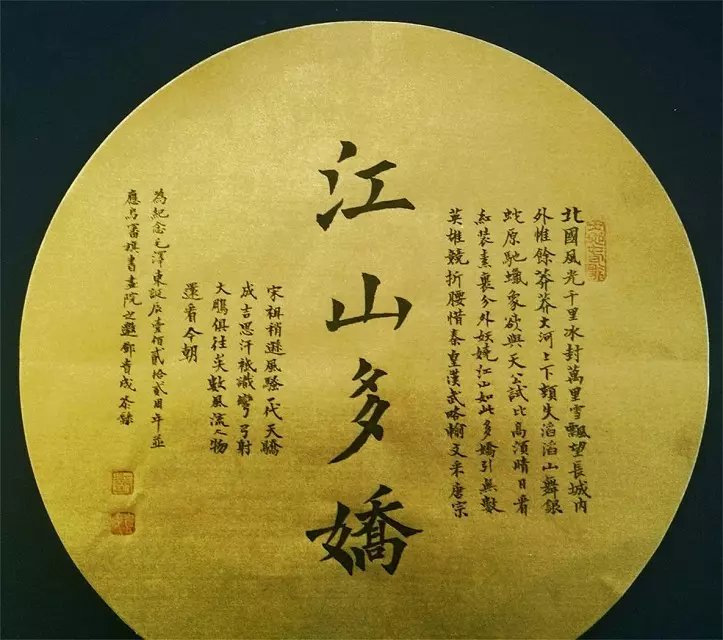 北國風光千里冰封萬里雪飄望長城内
外惟餘莽莽大河上下頓失滔滔山舞銀
蛇原馳蠟象欲與天公試比高須晴日看
紅裝素裹分外妖嬈江山如此多嬌引無數
英雄競折腰惜秦皇漢武略輸文采唐宗
江山多嬌
宋祖稍遜風騷一代天驕
成吉思汗衹識彎弓射
大鵰俱往矣數風流人物
還看今朝
為紀念毛澤東誕辰壹佰貳拾貳周年並
應烏審旗書畫院之邀鄧青成恭錄